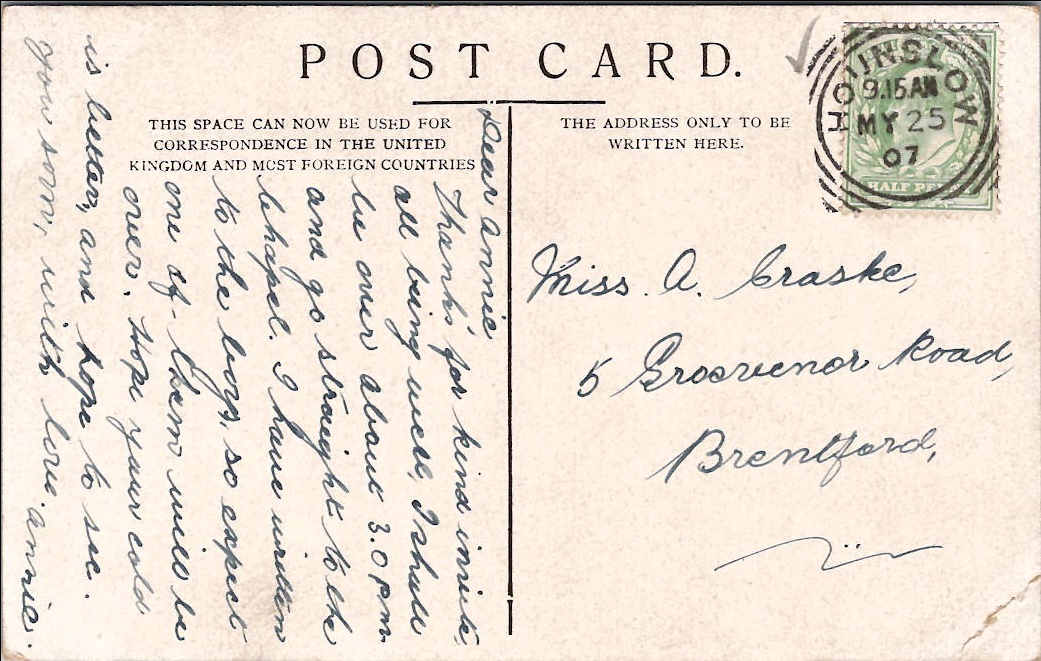 POST CARD.
THIS SPACE CAN NOW BE USED FOR
CORRESPONDENCE IN THE UNITED
KINGDOM AND MOST FOREIGN COUNTRIES
THE ADDRESS ONLY TO BE
WRITTEN HERE.
HOUNSLOW
9.15AM
MY 25
07
HALF PEN
Dear Annie
Thanks for kind invite,
all being well, I shall
be over about 3.0 pm
and go straight to the
Chapel. I have written
to the boys, so expect
one of them will be
over. Hope your cold
is better, and hope to see.
you soon, with love. Annie.
Miss. A. Craske,
5 Grosvenor Road,
Brentford,